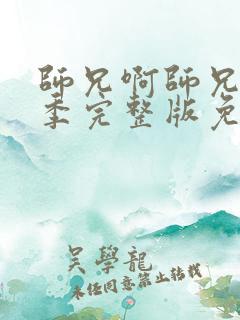 師兄啊師兄
季完整版免
吳學龍
未任同意禁止轉載